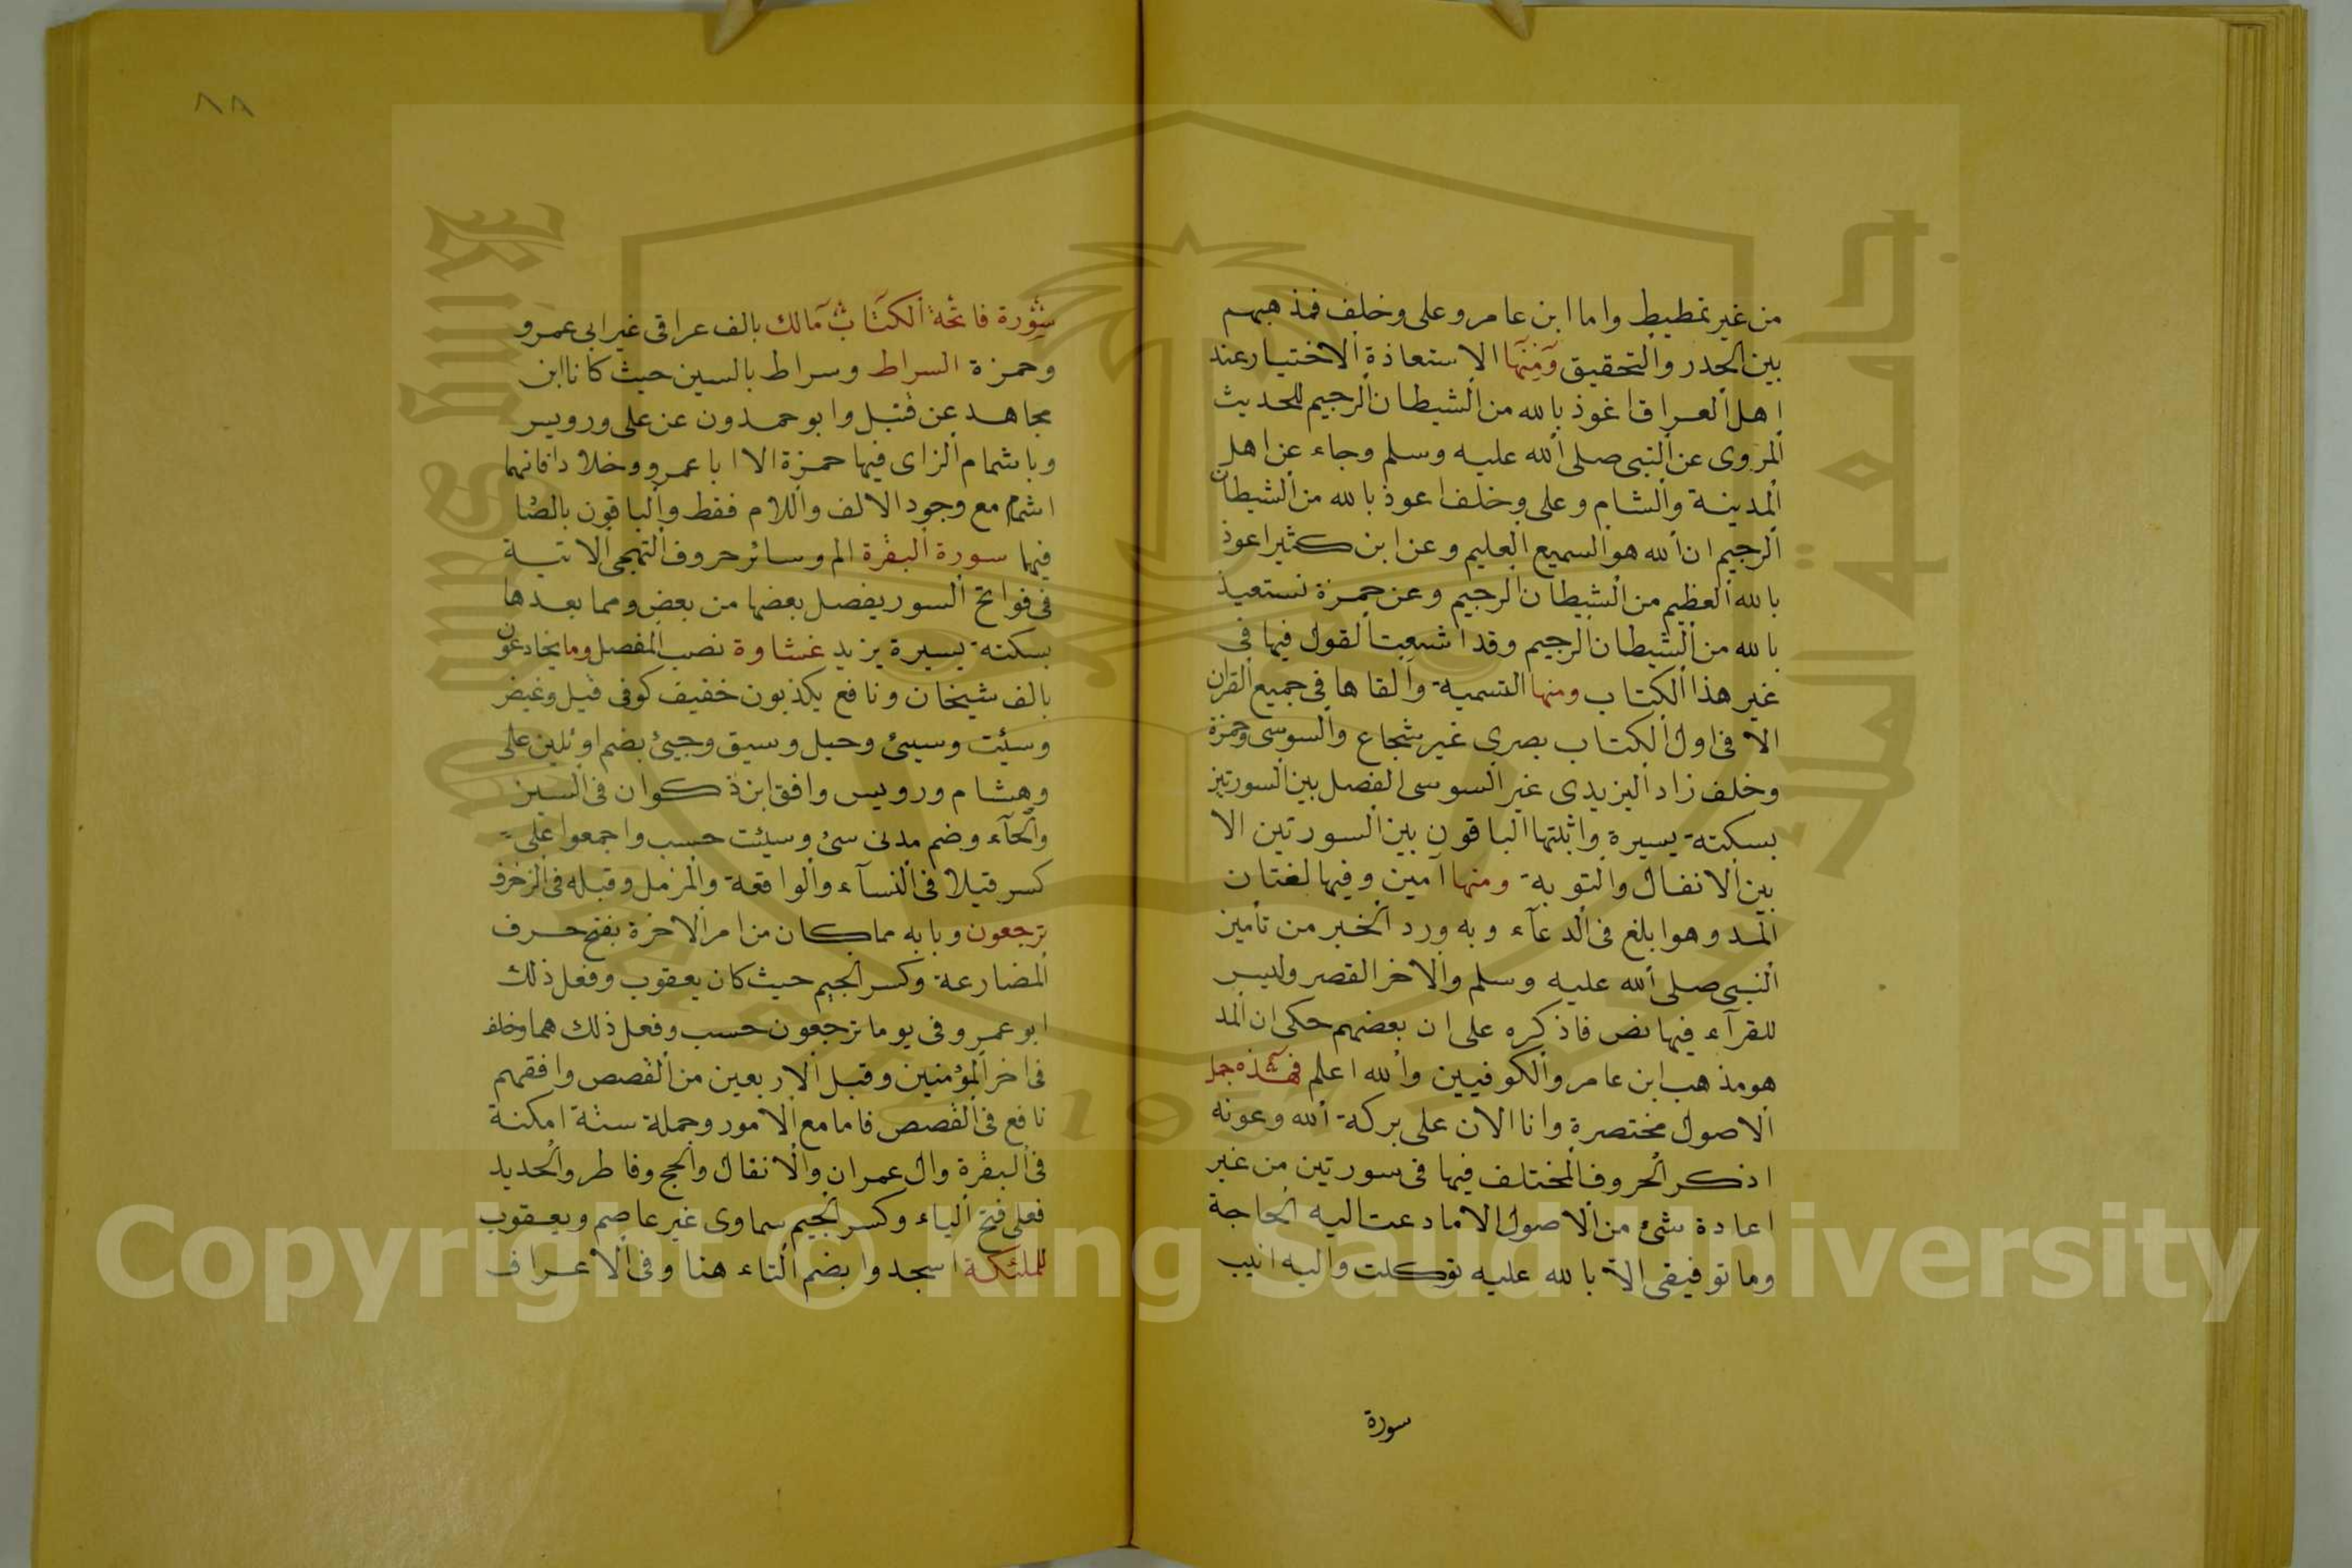 من غير تمطيط واما ابن عامر وعلى وخلف فمذهبهم
بين الحدر والتحقيق ومنها الاستعاذة الاختيار عند
اهل العراق اعوذ بالله من الشيطان الرجيم للحديث
المروى عن النبى صلى الله عليه وسلم وجاء عن اهل
المدينة والشام وعلى وخلف اعوذ بالله من الشيطان
الرجيم ان الله هو السميع العليم وعن ابن كثير اعوذ
بالله العظيم من الشيطان الرجيم وعن حمزة نستعيذ
بالله من الشيطان الرجيم وقد اشبعت القول فيها فى
غير هذا الكتاب ومنها التسمية والقاها فى جميع القران
الا فى اول الكتاب بصرى غير شجاع والسوسى وحمزة
وخلف زاد اليزيدى غير السوسى الفصل بين السورتين
بسكتة يسيرة واثبتها الباقون بين السورتين الا
بين الانفال والتوبة ومنها آمين وفيها لغتان
المد وهو ابلغ فى الدعآء وبه ورد الخبر من تأمين
النبى صلى الله عليه وسلم والاخر القصر وليس
للقرآء فيها نص فاذكره على ان بعضهم حكى ان المد
هو مذهب ابن عامر والكوفيين والله اعلم فهذه جمل
الاصول مختصرة وانا الان على بركة الله وعونه
اذكر الحروف المختلف فيها فى سورتين من غير
اعادة شئ من الاصول الا ما دعت اليه الحاجة
وما توفيقى الا بالله عليه توكلت واليه انيب
سورة
٨٨
سورة فاتحة الكتاب مالك بالف عراقى غير ابى عمرو
وحمزة السراط وسراط بالسين حيث كانا ابن
مجاهد عن قنبل وابو حمدون عن على ورويس
وباشمام الزاى فيها حمزة الا ابا عمرو وخلادا فانهما
اشمام مع وجود الالف واللام فقط والباقون بالصا
فيها سورة البقرة الم وسائر حروف التهجى الاتية
فى فواتح السور يفصل بعضها من بعض ومما بعدها
بسكتة يسيرة يزيد غشاوة نصب المفضل وما يخادعون
بالف شيخان ونافع يكذبون خفيف كوفى قيل وغيض
وسيئت وسيئ وحيل وسيق وجيئ بضم اوئلين على
وهشام ورويس وافق ابن ذكوان فى السين
والحآء وضم مدنى سئ وسيئت حسب واجمعوا على
كسر قيلا فى النسآء والواقعة والمزمل وقيله فى الزخرف
ترجعون وبابه مما كان من امر الاخرة بفتح حرف
المضارعة وكسر الجيم حيث كان يعقوب وفعل ذلك
ابو عمرو فى يوما ترجعون حسب وفعل ذلك هما وخلف
فى اخر المؤمنين وقبل الاربعين من القصص وافقهم
نافع فى القصص فاما مع الامور وجملة ستة امكنة
فى البقرة وال عمران والانفال والحج وفاطر والحديد
فعلى فتح الياء وكسر الجيم سماوى غير عاصم ويعقوب
للملئكة اسجدوا بضم التاء هنا وفى الاعراف
Copyright © King Saud University
جامعة الملك سعود
King Saud University
1957